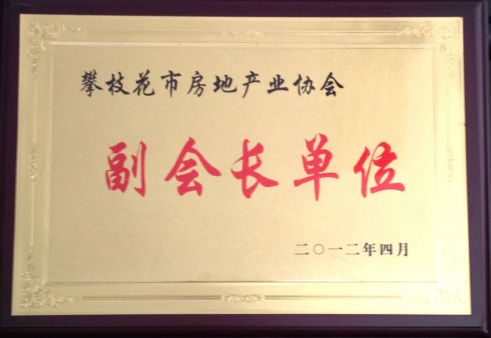 攀枝花市房地产业协会
副会长单位
二〇一二年四月